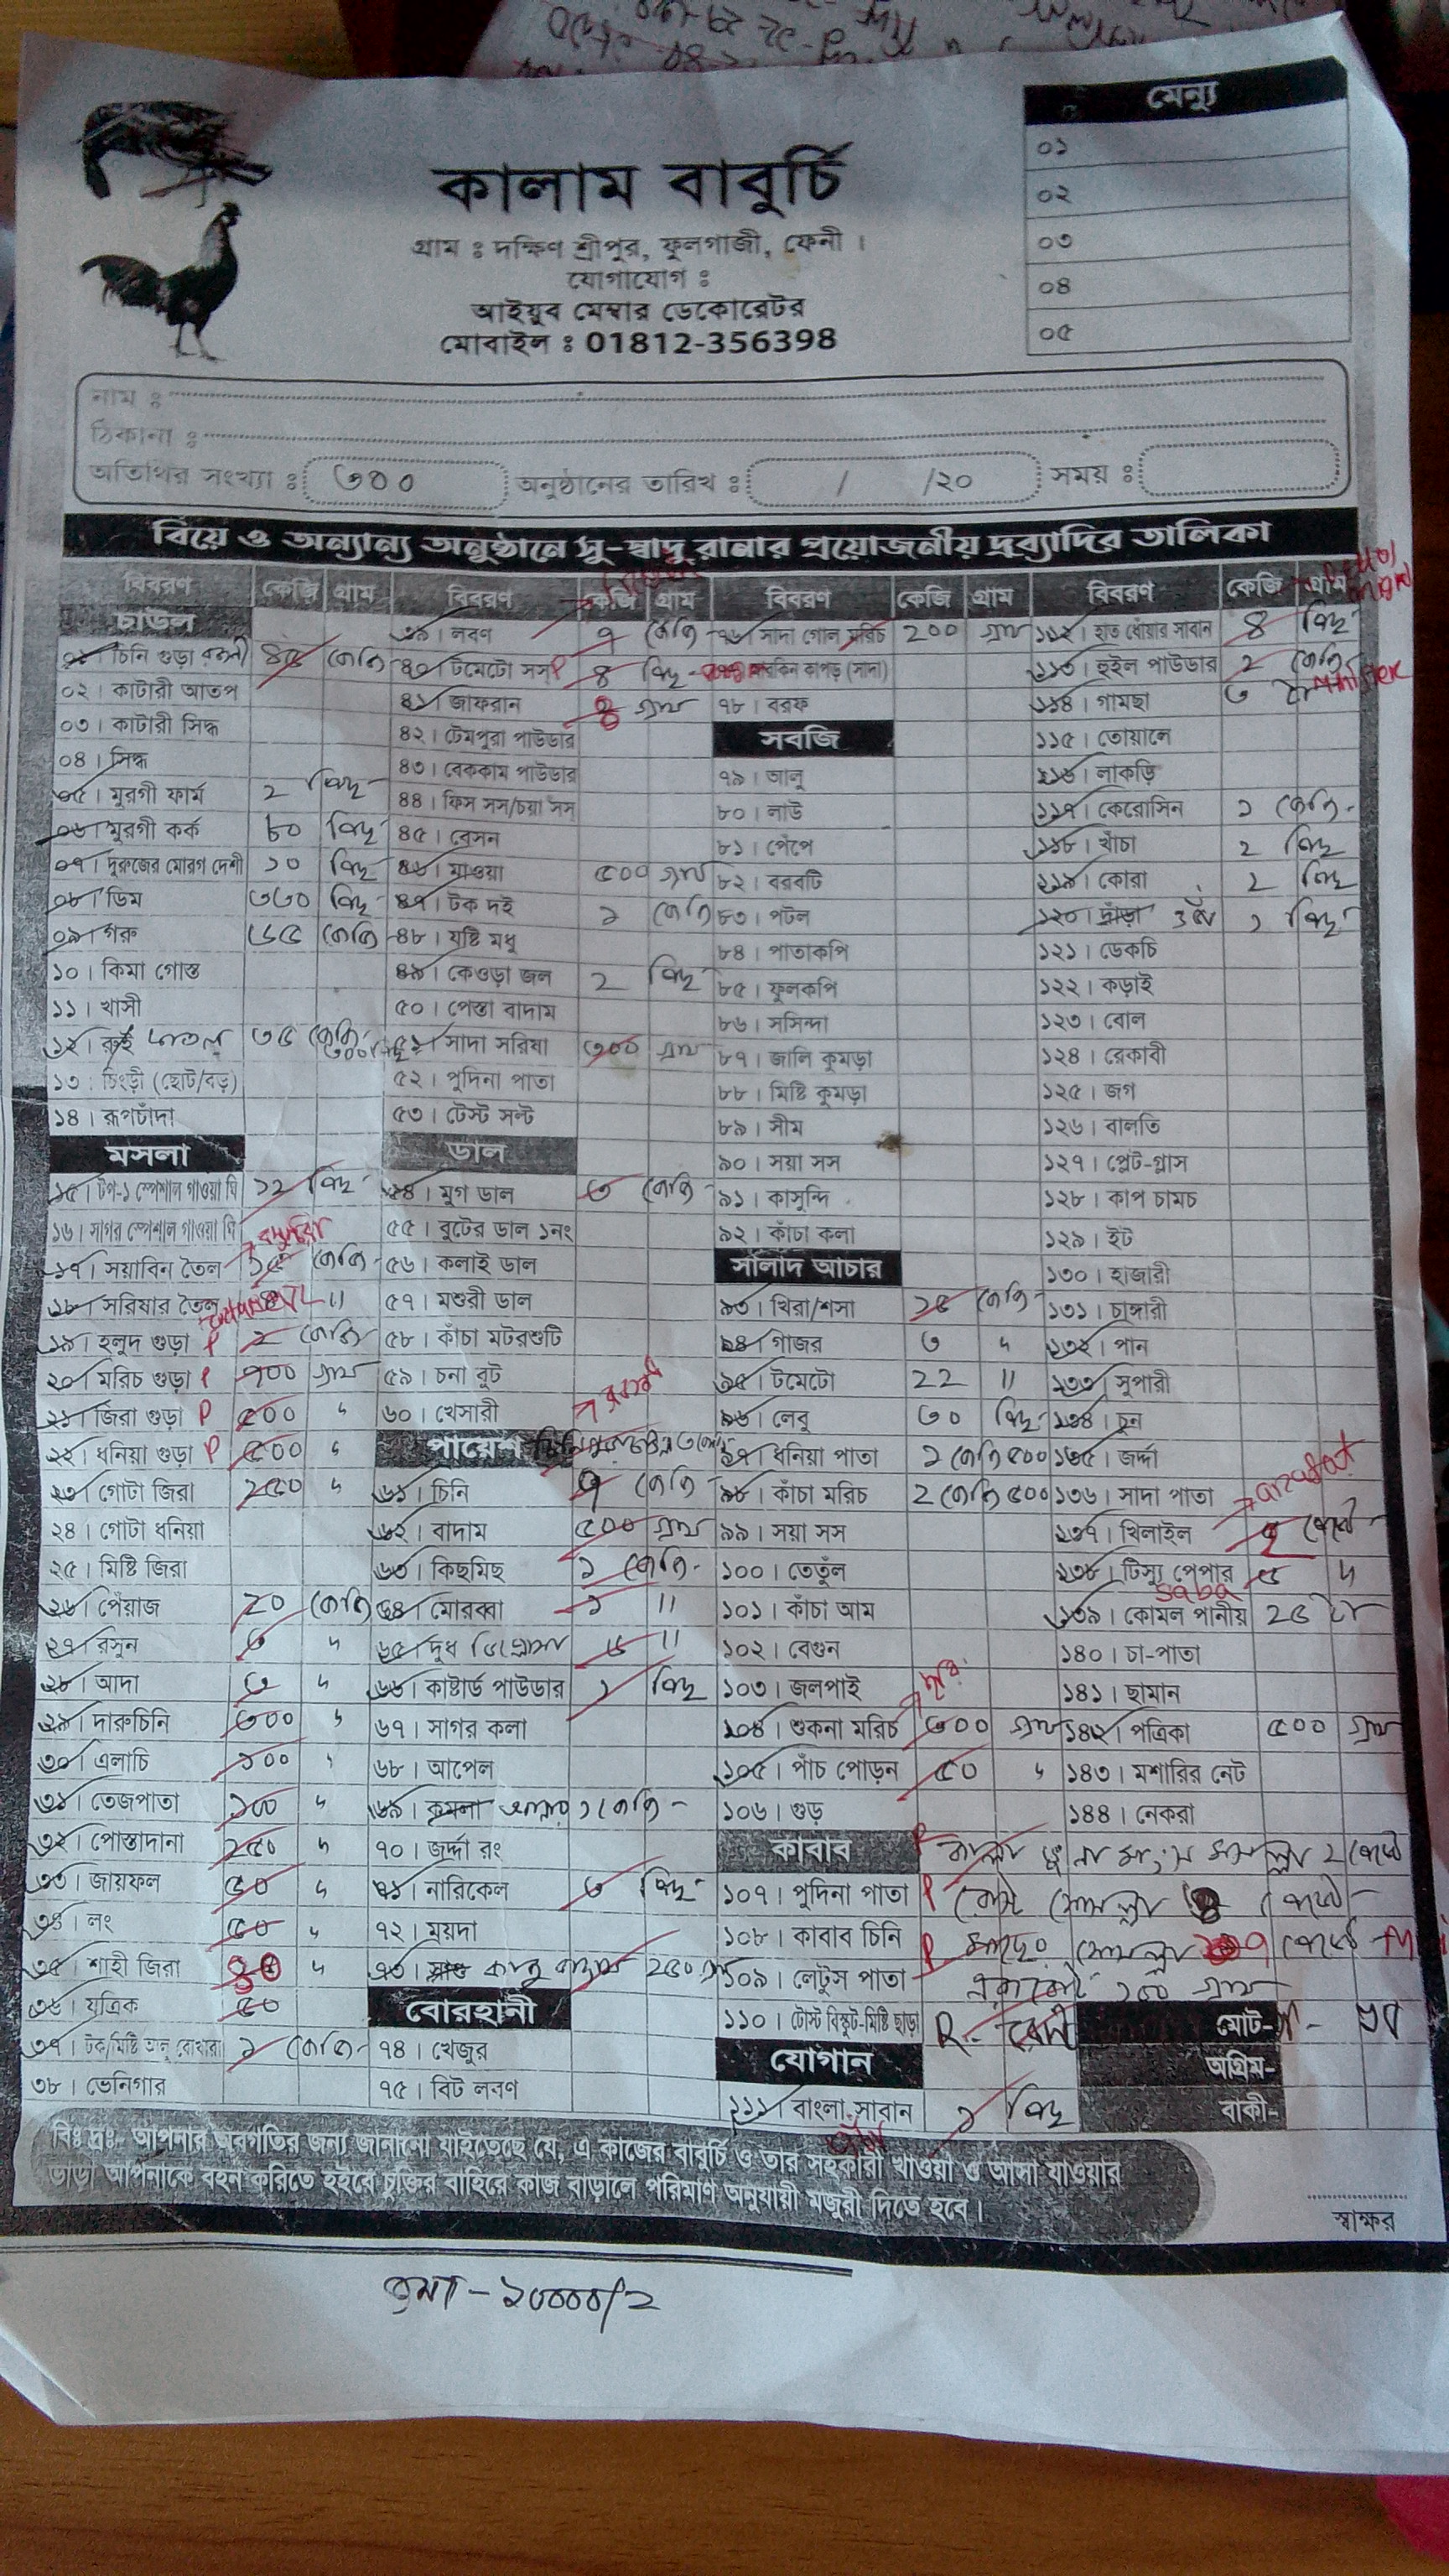 মেন্যু
০১
০২
০৩
০৪
০৫
কালাম বাবুর্চি
গ্রাম ঃ দক্ষিণ শ্রীপুর, ফুলগাজী, ফেনী ।
যোগাযোগ ঃ
আইয়ুব মেম্বার ডেকোরেটর
মোবাইল ঃ 01812-356398
নাম ঃ
ঠিকানা ঃ
অতিথির সংখ্যা ঃ ৩০০ অনুষ্ঠানের তারিখ ঃ / /২০ সময় ঃ
বিয়ে ও অন্যান্য অনুষ্ঠানে সু-স্বাদু রান্নার প্রয়োজনীয় দ্রব্যাদির তালিকা
বিবরণ কেজি গ্রাম
চাউল
০১। চিনি গুড়া ৪৫ কেজি
০২। কাটারী আতপ
০৩। কাটারী সিদ্ধ
০৪। সিদ্ধ
০৫। মুরগী ফার্ম ২ পিছ
০৬। মুরগী কর্ক ৮০ পিছ
০৭। দুরুজের মোরগ দেশী ১০ পিছ
০৮। ডিম ৩৩০ পিছ
০৯। গরু ৬৫ কেজি
১০। কিমা গোস্ত
১১। খাসী
১২। রুই কাতল ৩৫ কেজি
১৩। চিংড়ী (ছোট/বড়)
১৪। রূপচাঁদা
মসলা
১৫। টপ-১ স্পেশাল গাওয়া ঘি ১২ পিছ
১৬। সাগর স্পেশাল গাওয়া ঘি
১৭। সয়াবিন তৈল কেজি
১৮। সরিষার তৈল
১৯। হলুদ গুড়া P ২ কেজি
২০। মরিচ গুড়া P ৭০০ গ্রাম
২১। জিরা গুড়া P ৫০০ "
২২। ধনিয়া গুড়া P ৫০০ "
২৩। গোটা জিরা ২৫০ "
২৪। গোটা ধনিয়া
২৫। মিষ্টি জিরা
২৬। পেঁয়াজ ২০ কেজি
২৭। রসুন ৩ "
২৮। আদা ৩ "
২৯। দারুচিনি ৩০০ "
৩০। এলাচি ১০০ "
৩১। তেজপাতা ১০০ "
৩২। পোস্তাদানা ২৫০ "
৩৩। জায়ফল ৫০ "
৩৪। লং ৫০ "
৩৫। শাহী জিরা "
৩৬। যত্রিক ৫০
৩৭। টক/মিষ্টি আলু বোখারা ১ কেজি
৩৮। ভেনিগার
বিবরণ কেজি গ্রাম
৩৯। লবণ ৭ কেজি
৪০। টমেটো সস P ৪ পিছ
৪১। জাফরান গ্রাম
৪২। টেমপুরা পাউডার
৪৩। বেককাম পাউডার
৪৪। ফিস সস/চয়া সস
৪৫। বেসন
৪৬। মাওয়া ৫০০ গ্রাম
৪৭। টক দই ১ কেজি
৪৮। যষ্টি মধু
৪৯। কেওড়া জল ২ পিছ
৫০। পেস্তা বাদাম
৫১। সাদা সরিষা ৩০০ গ্রাম
৫২। পুদিনা পাতা
৫৩। টেস্ট সল্ট
ডাল
৫৪। মুগ ডাল ৩ কেজি
৫৫। বুটের ডাল ১নং
৫৬। কলাই ডাল
৫৭। মশুরী ডাল
৫৮। কাঁচা মটরশুটি
৫৯। চনা বুট
৬০। খেসারী
পায়েশ
৬১। চিনি কেজি
৬২। বাদাম ৫০০ গ্রাম
৬৩। কিছমিছ ১ কেজি
৬৪। মোরব্বা ১ "
৬৫। দুধ ৫ "
৬৬। কাষ্টার্ড পাউডার ১ পিছ
৬৭। সাগর কলা
৬৮। আপেল
৬৯। কমলা ১ কেজি
৭০। জর্দ্দা রং
৭১। নারিকেল ৩ পিছ
৭২। ময়দা
৭৩। কাজু বাদাম ২৫০ গ্রাম
বোরহানী
৭৪। খেজুর
৭৫। বিট লবণ
বিবরণ কেজি গ্রাম
৭৬। সাদা গোল মরিচ ২০০ গ্রাম
কাপড় (সাদা)
৭৮। বরফ
সবজি
৭৯। আলু
৮০। লাউ
৮১। পেঁপে
৮২। বরবটি
৮৩। পটল
৮৪। পাতাকপি
৮৫। ফুলকপি
৮৬। সসিন্দা
৮৭। জালি কুমড়া
৮৮। মিষ্টি কুমড়া
৮৯। সীম
৯০। সয়া সস
৯১। কাসুন্দি
৯২। কাঁচা কলা
সালাদ আচার
৯৩। খিরা/শসা ১৫ কেজি
৯৪। গাজর ৩ "
৯৫। টমেটো ২২ "
৯৬। লেবু ৩০ পিছ
৯৭। ধনিয়া পাতা ১ কেজি ৫০০
৯৮। কাঁচা মরিচ ২ কেজি ৫০০
৯৯। সয়া সস
১০০। তেতুঁল
১০১। কাঁচা আম
১০২। বেগুন
১০৩। জলপাই
১০৪। শুকনা মরিচ ৩০০ গ্রাম
১০৫। পাঁচ পোড়ন ৫০ "
১০৬। গুড়
কাবাব
১০৭। পুদিনা পাতা
১০৮। কাবাব চিনি
১০৯। লেটুস পাতা
১১০। টোস্ট বিস্কুট-মিষ্টি ছাড়া
যোগান
১১১। বাংলা সাবান ১ পিছ
বিবরণ কেজি গ্রাম
১১২। হাত ধোঁয়ার সাবান ৪ পিছ
১১৩। হুইল পাউডার ২ কেজি
১১৪। গামছা ৩ টা
১১৫। তোয়ালে
১১৬। লাকড়ি
১১৭। কেরোসিন ১ কেজি
১১৮। খাঁচা ২ পিছ
১১৯। কোরা ২ পিছ
১২০। দাঁড়া ১ পিছ
১২১। ডেকচি
১২২। কড়াই
১২৩। বোল
১২৪। রেকাবী
১২৫। জগ
১২৬। বালতি
১২৭। প্লেট-গ্লাস
১২৮। কাপ চামচ
১২৯। ইট
১৩০। হাজারী
১৩১। চাঙ্গারী
১৩২। পান
১৩৩। সুপারী
১৩৪। চুন
১৩৫। জর্দ্দা
১৩৬। সাদা পাতা
১৩৭। খিলাইল
১৩৮। টিস্যু পেপার ৫ "
saba
১৩৯। কোমল পানীয় ২৫ টা
১৪০। চা-পাতা
১৪১। ছামান
১৪২। পত্রিকা ৫০০ গ্রাম
১৪৩। মশারির নেট
১৪৪। নেকরা
মোট-
অগ্রিম-
বাকী-
বিঃ দ্রঃ- আপনার অবগতির জন্য জানানো যাইতেছে যে, এ কাজের বাবুর্চি ও তার সহকারী খাওয়া ও আসা যাওয়ার
ভাড়া আপনাকে বহন করিতে হইবে চুক্তির বাহিরে কাজ বাড়ালে পরিমাণ অনুযায়ী মজুরী দিতে হবে।
স্বাক্ষর
১০০০০/২